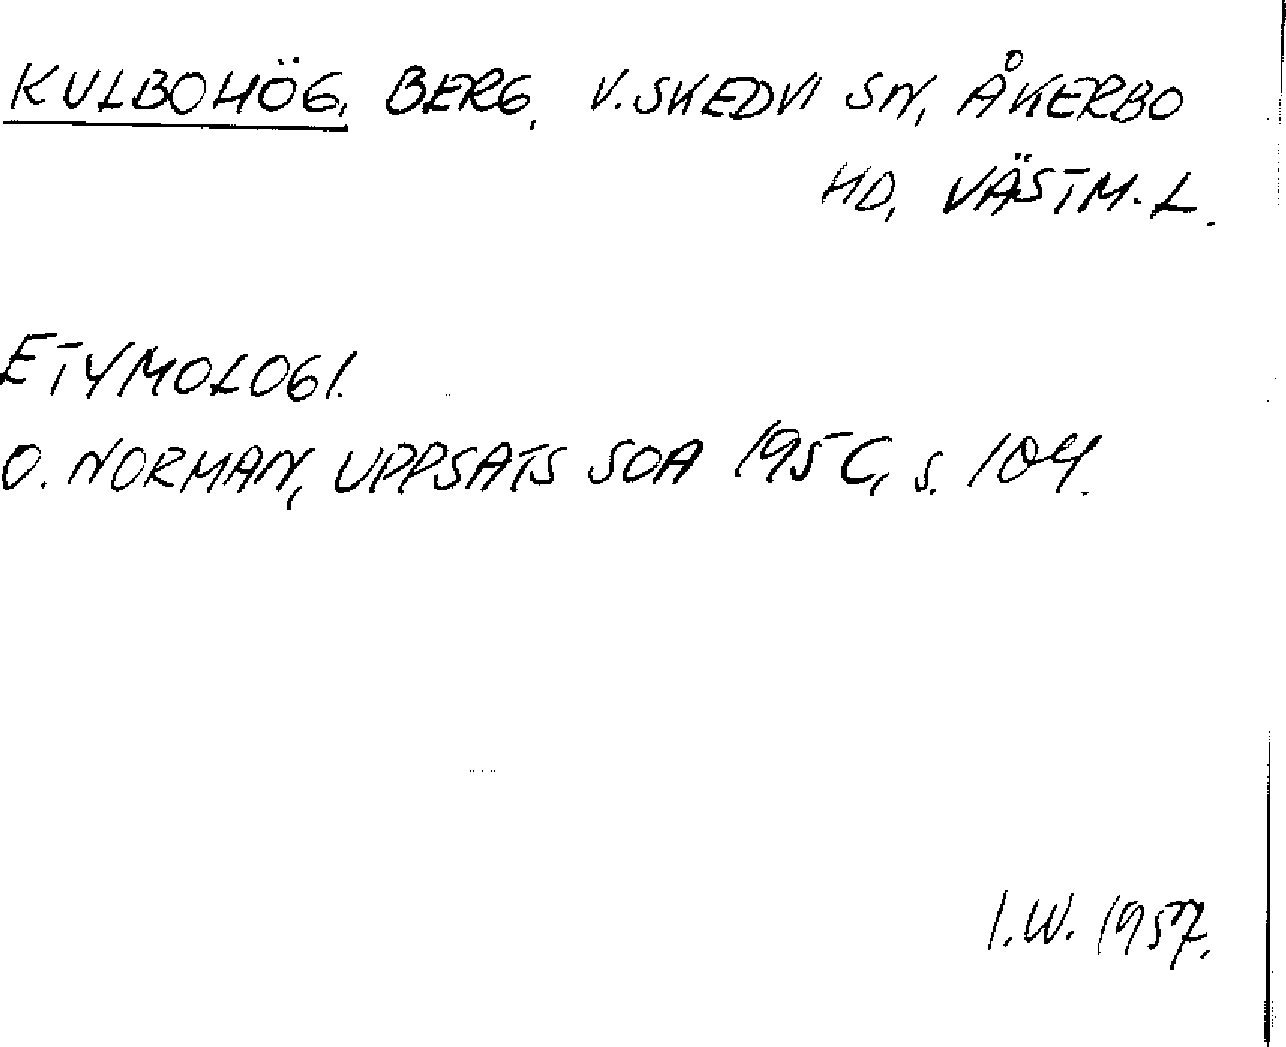 KULBOHÖG, BERG, V. SKEDVI SN, ÅKERBO
HD, VÄSTM. L.
ETYMOLOGI.
O. NORMAN, UPPSATS SOA 1956, s. 104.
I.W. 1957.